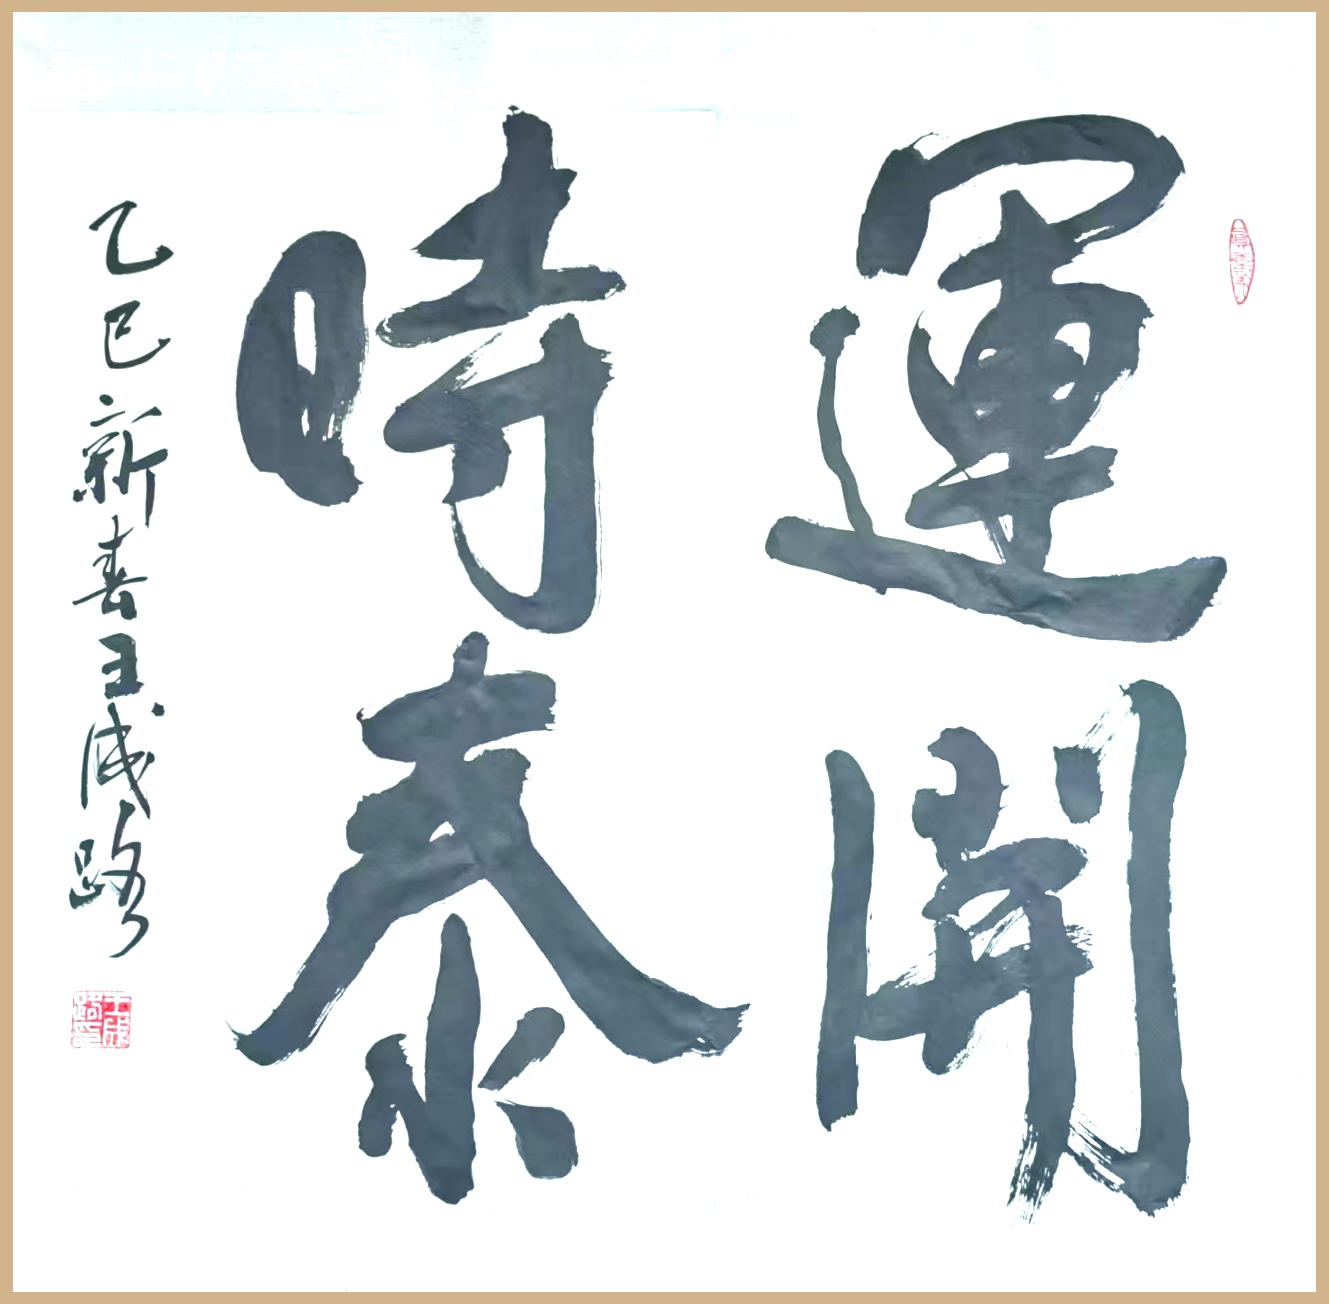 運開
時泰
乙巳新春王成路